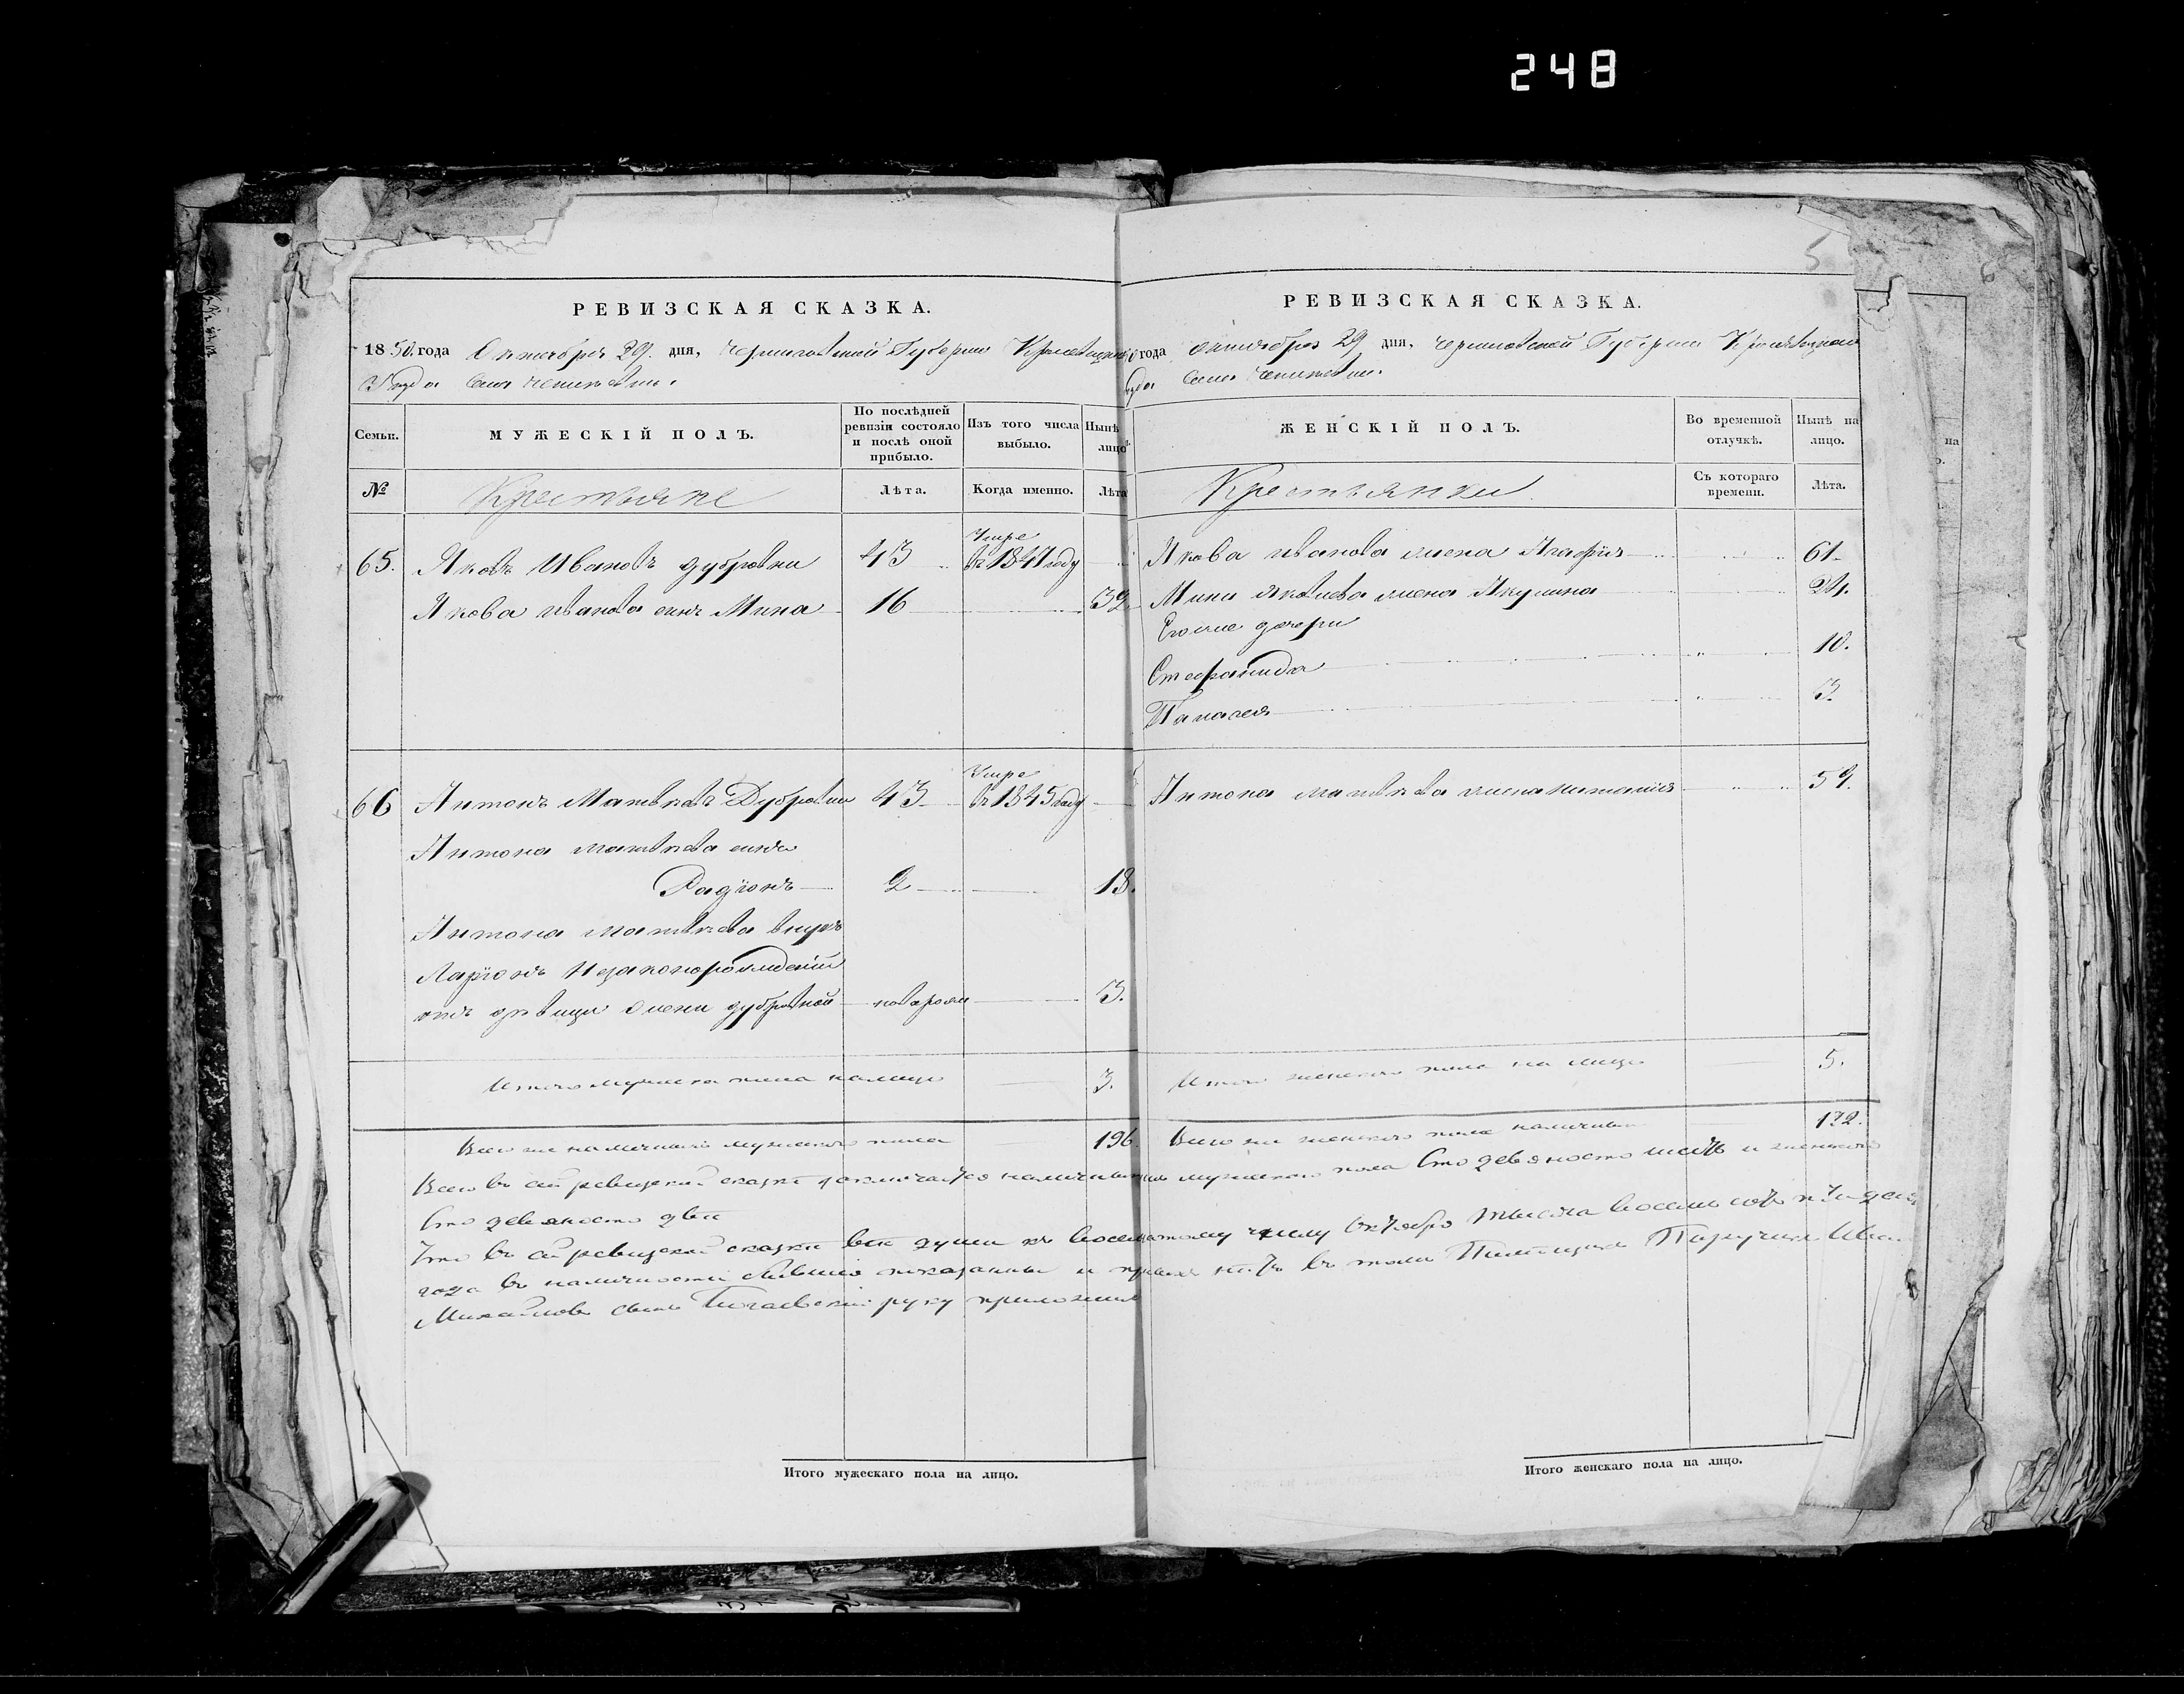 248
5
РЕВИЗСКАЯ СКАЗКА.
1850. года Октября 29. дня, Черниговской Губернии Кролевецкаго
Уезда Села
Семьи. МУЖЕСКІЙ ПОЛЪ. По послѣдней ревизіи состояло и послѣ оной прибыло. Изъ того числа выбыло. Нынѣ лицо
№ Крестьяне Лѣта. Когда именно. Лѣта
Умре
65. Яковъ Ивановъ дубровки 43 въ 1847 году
Якова иванова сынъ Мина 16 32
Умре
66 Антонъ Матвѣевъ Дубровки 43 въ 1845 году
Антона матвѣева сынъ
Радіонъ 2 18.
Антона матвѣева внукъ
Ларіонъ Незаконорожденій
отъ дѣвици Елени дубровкой новорож 3.
Итого мужеска пола налицо 3.
Всего же наличныхъ мужескаго пола 196
РЕВИЗСКАЯ СКАЗКА.
года октября 29 дня, черниговской Губернии Кролевецкаго
Села
ЖЕНСКІЙ ПОЛЪ. Во временной отлучкѣ. Нынѣ на лицо.
Крестьянки. Съ котораго времени. Лѣта.
Якова иванова жена Агафія 61.
Мини яковлева жена Акулина 24.
Егоже дочери
Стефанида 10.
Палагея 3.
Антона матвѣева жена 59.
Итого женскаго пола на лицо 5.
Всего же женскаго пола наличныхъ 192.
Всего въ сей ревизской сказкѣ заключается наличныхъ мужескаго пола Сто девяносто шесть и женскаго
Сто девяносто двѣ
Что въ сей ревизской сказкѣ всѣ души къ числу Октября Тысяча восемь сотъ
года въ наличности показанны и нѣтъ въ томъ Помещикъ Поручикъ Иван
Михайловъ сынъ руку приложилъ
Итого мужескаго пола на лицо.
Итого женскаго пола на лицо.